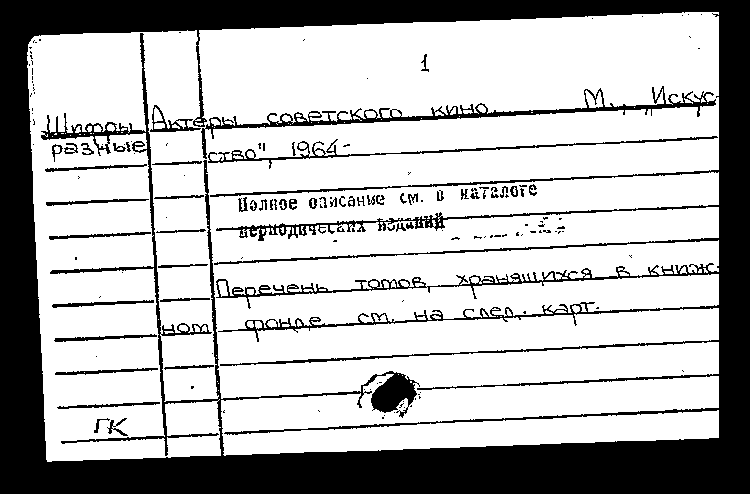 1
Шифры Актеры советского кино. М., „Искус-
разные ство", 1964-
Полное описание см. в каталоге
периодических изданий
Перечень томов, хранящихся в книж-
ном фонде см. на след. карт.
ГК